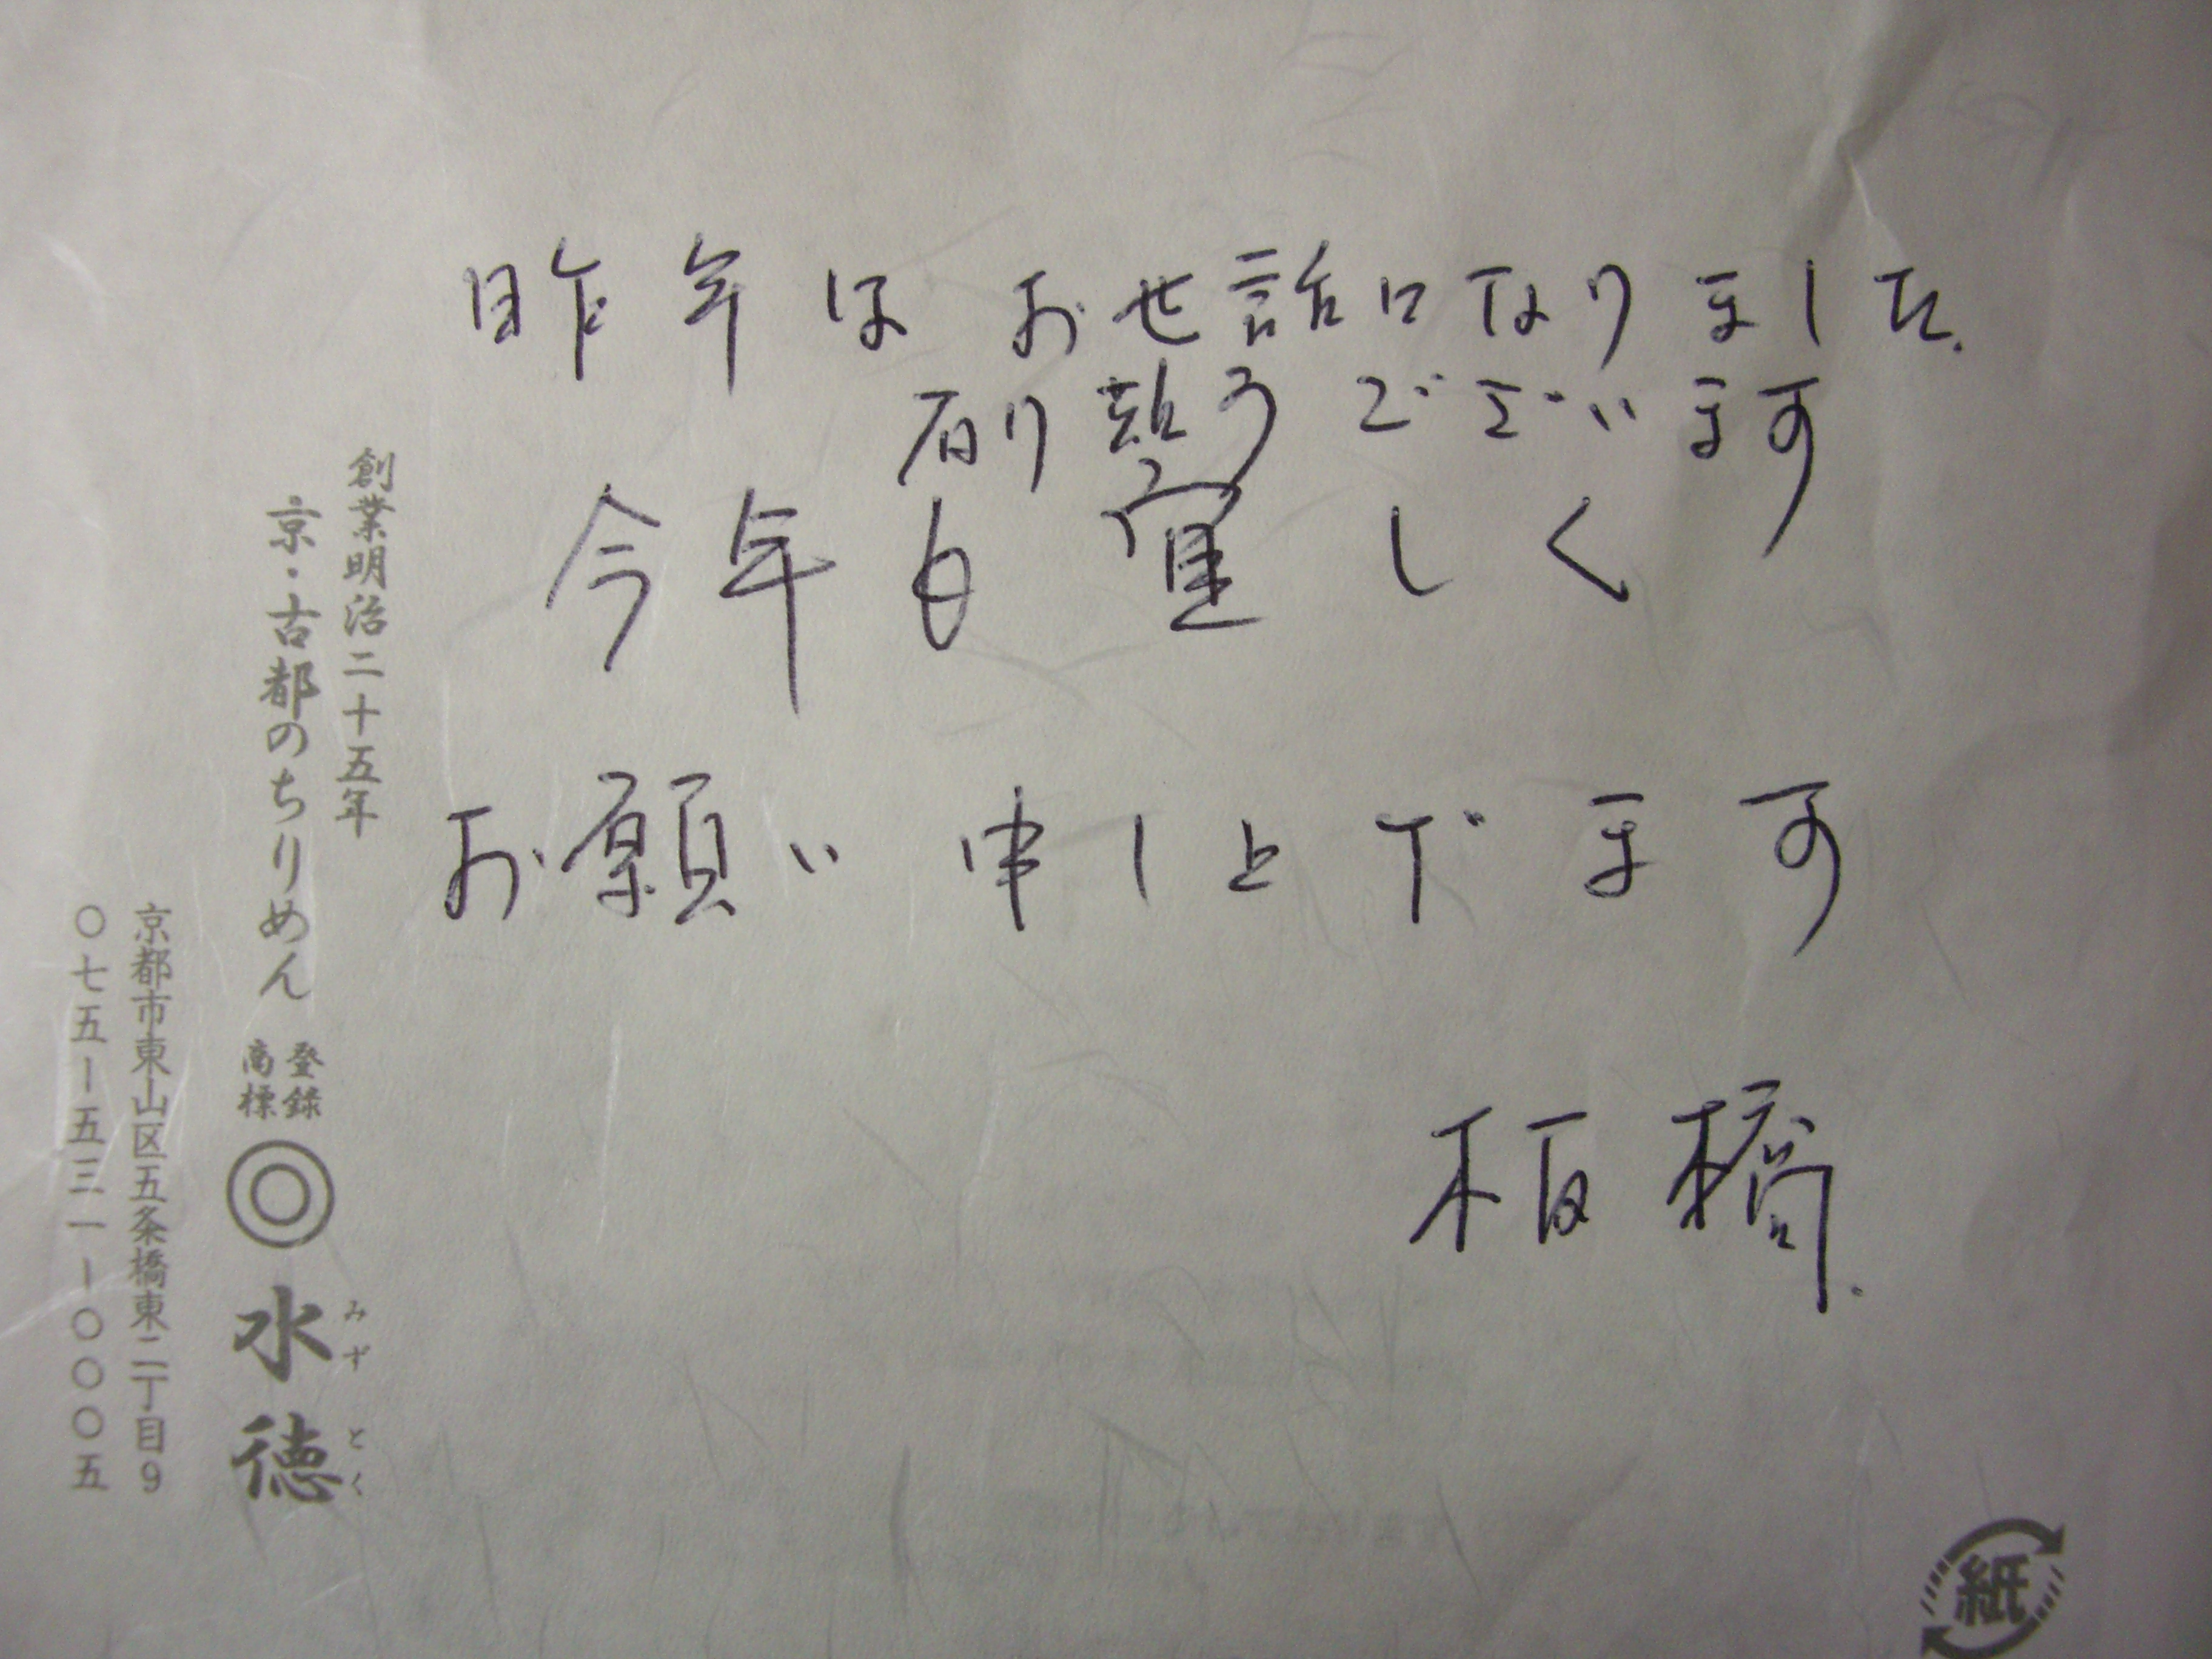 昨年はお世話になりました.
有り難うございます
今年も宜しく
お願い申し上げます
板橋.
創業明治二十五年
京・古都のちりめん
登録
商標
水徳
みずとく
京都市東山区五条橋東二丁目9
〇七五ー五三一ー〇〇〇五
紙